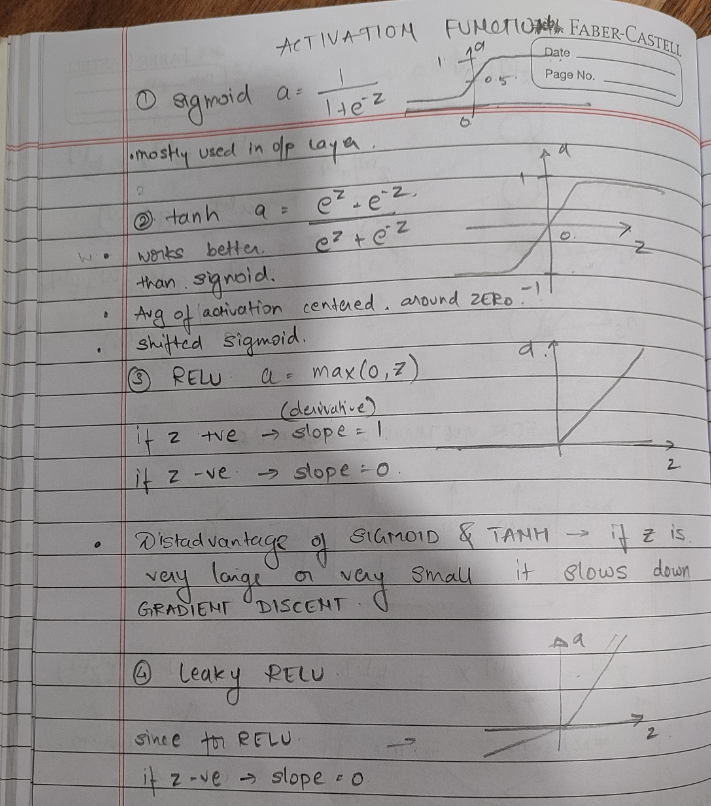 ACTIVATION FUNCTION
FABER-CASTELL
Date
Page No.
① sigmoid a = 1 / 1+e^-z
1 a
0.5
0
• mostly used in o/p layer.
② tanh a = e^z - e^-z / e^z + e^-z
a
1
0
z
-1
• works better
than sigmoid.
• Avg of activation centered around ZERO.
• shifted sigmoid.
③ RELU a = max(0,z)
a
z
(derivative)
if z +ve → slope = 1
if z -ve → slope = 0.
• Distadvantage of SIGMOID & TANH → if z is
very large or very small it slows down
GRADIENT DISCENT.
④ Leaky RELU
a
z
since for RELU →
if z -ve → slope = 0